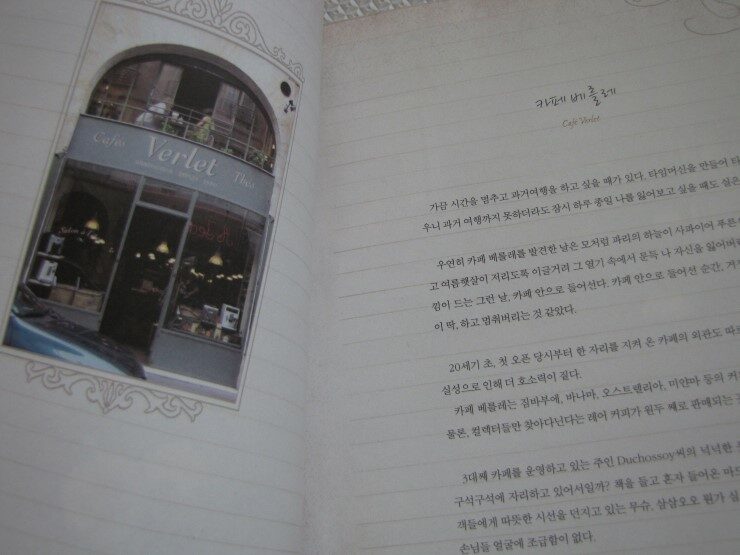 Cafés Verlet Thés
Salon d
카페 베를레
Café Verlet
가끔 시간을 멈추고 과거여행을 하고 싶을 때가 있다. 타임머신을 만들어 타
우니 과거 여행까지 못하더라도 잠시 하루 종일 나를 잃어보고 싶을 때도 싶은
우연히 카페 베를레를 발견한 날은 모처럼 파리의 하늘이 사파이어 푸른
고 여름햇살이 저리도록 이글거려 그 열기 속에서 문득 나 자신을 잃어버리
낌이 드는 그런 날, 카페 안으로 들어선다. 카페 안으로 들어선 순간,
이 딱, 하고 멈춰버리는 것 같았다.
20세기 초, 첫 오픈 당시부터 한 자리를 지켜 온 카페의 외관도 따로
실성으로 인해 더 호소력이 짙다.
카페 베를레는 짐바부에, 바나마, 오스트렐리아, 미얀마 등의 커
물론, 컬렉터들만 찾아다닌다는 레어 커피가 원두 째로 판매되는
3대째 카페를 운영하고 있는 주인 Duchossoy씨의 넉넉한
구석구석에 자리하고 있어서일까? 책을 들고 혼자 들어온 마드
객들에게 따뜻한 시선을 던지고 있는 무슈, 삼삼오오 뭔가
손님들 얼굴에 조급함이 없다.